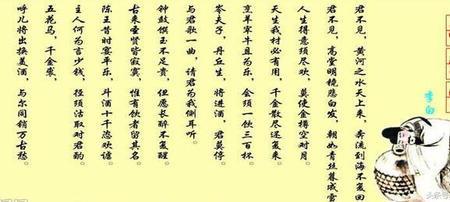 君不见，黄河之水天上来，奔流到海不复回
君不见，高堂明镜悲白发，朝如青丝暮成雪
人生得意须尽欢，莫使金樽空对月。
天生我材必有用，千金散尽还复来。
烹羊宰牛且为乐，会须一饮三百杯。
岑夫子，丹丘生，将进酒，君莫停。
与君歌一曲，请君为我侧耳听。
钟鼓馔玉不足贵，但愿长醉不复醒。
古来圣贤皆寂寞，惟有饮者留其名。
陈王昔时宴平乐，斗酒十千恣欢谑。
主人何为言少钱，径须沽取对君酌。
五花马，千金裘，
呼儿将出换美酒，与尔同销万古愁。
李白